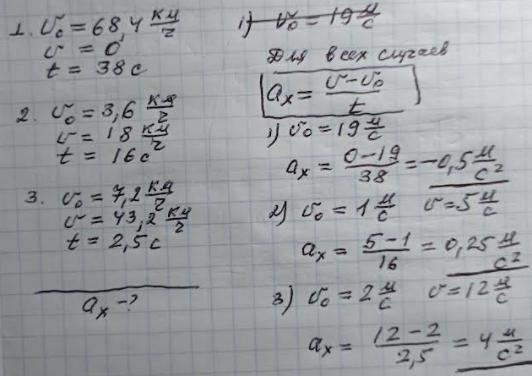 1. v₀ = 68,4 км/ч
v = 0
t = 38 с
2. v₀ = 3,6 км/ч
v = 18 км/ч
t = 16 с
3. v₀ = 7,2 км/ч
v = 43,2 км/ч
t = 2,5 с
aₓ - ?
1) v₀ = 19 м/с
Для всех случаев
aₓ = (v - v₀)/t
1) v₀ = 19 м/с
aₓ = (0 - 19)/38 = -0,5 м/с²
2) v₀ = 1 м/с v = 5 м/с
aₓ = (5 - 1)/16 = 0,25 м/с²
3) v₀ = 2 м/с v = 12 м/с
aₓ = (12 - 2)/2,5 = 4 м/с²